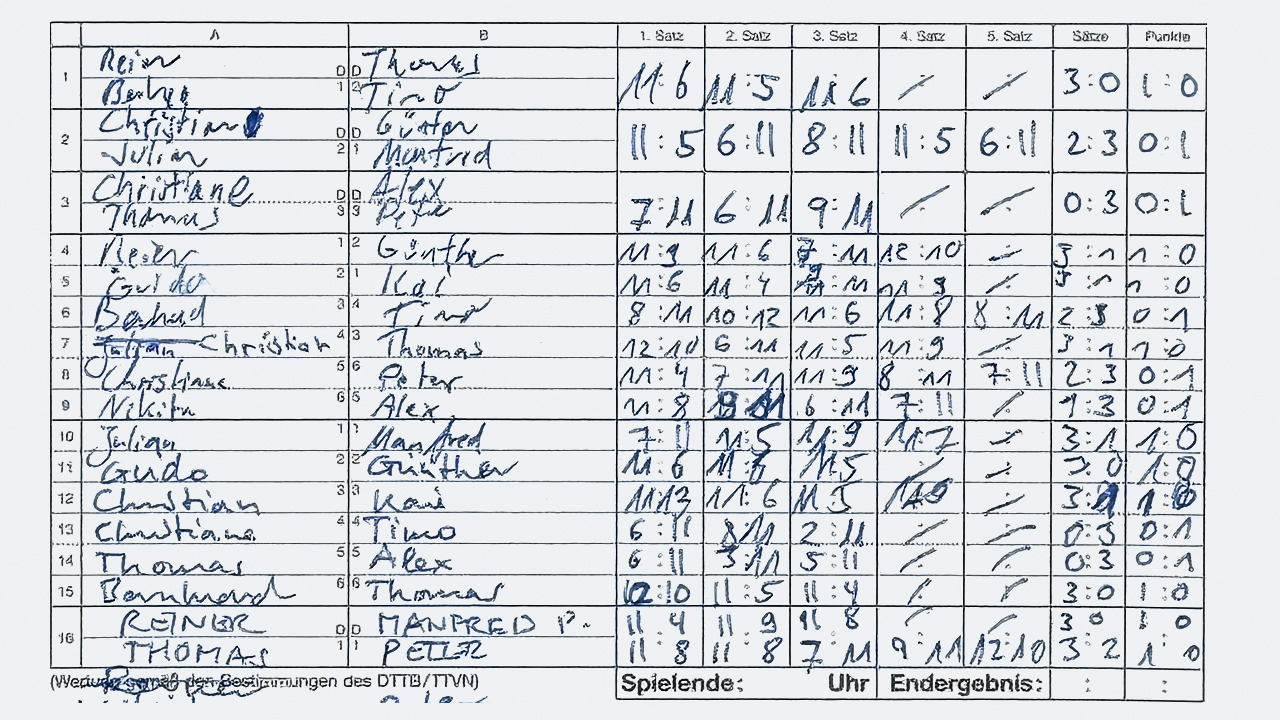 A B 1. Satz 2. Satz 3. Satz 4. Satz 5. Satz Sätze Punkte
1 Rein D D Thomas 11:6 11:5 11:6 / / 3:0 1:0
1 2 Timo
2 Christian D D Günter 11:5 6:11 8:11 11:5 6:11 2:3 0:1
Julian 2 1 Manfred
3 Christiane D D Alex 7:11 6:11 9:11 / / 0:3 0:1
Thomas 3 3 Peter
4 1 2 Günther 11:9 11:6 7:11 12:10 / 3:1 1:0
5 Guido 2 1 Kai 11:6 11:4 11:9 / 3:1 1:0
6 Bernhard 3 4 Timo 8:11 10:12 11:6 11:8 8:11 2:3 0:1
7 Julian Christian 4 3 Thomas 12:10 6:11 11:5 11:9 / 3:1 1:0
8 Christiane 5 6 Peter 11:4 7:11 11:9 8:11 7:11 2:3 0:1
9 Nikita 6 5 Alex 11:8 6:11 7:11 / 1:3 0:1
10 Julian 1 1 Manfred 7:11 11:5 11:9 11:7 / 3:1 1:0
11 Guido 2 2 Günther 11:6 11:5 / / 3:0 1:0
12 Christian 3 3 Kai 11:13 11:6 11:5 / 3:1 1:0
13 Christiane 4 4 Timo 6:11 8:11 2:11 / / 0:3 0:1
14 Thomas 5 5 Alex 6:11 3:11 5:11 / / 0:3 0:1
15 Bernhard 6 6 Thomas 12:10 11:5 11:4 / / 3:0 1:0
16 REINER D D MANFRED P. 11 4 11 9 11 8 3 0 1 0
THOMAS 1 1 PETER 11 8 11 8 7 11 9 11 12 10 3 2 1 0
(Wertung gemäß den Bestimmungen des DTTB/TTVN) Spielende: Uhr Endergebnis: : :